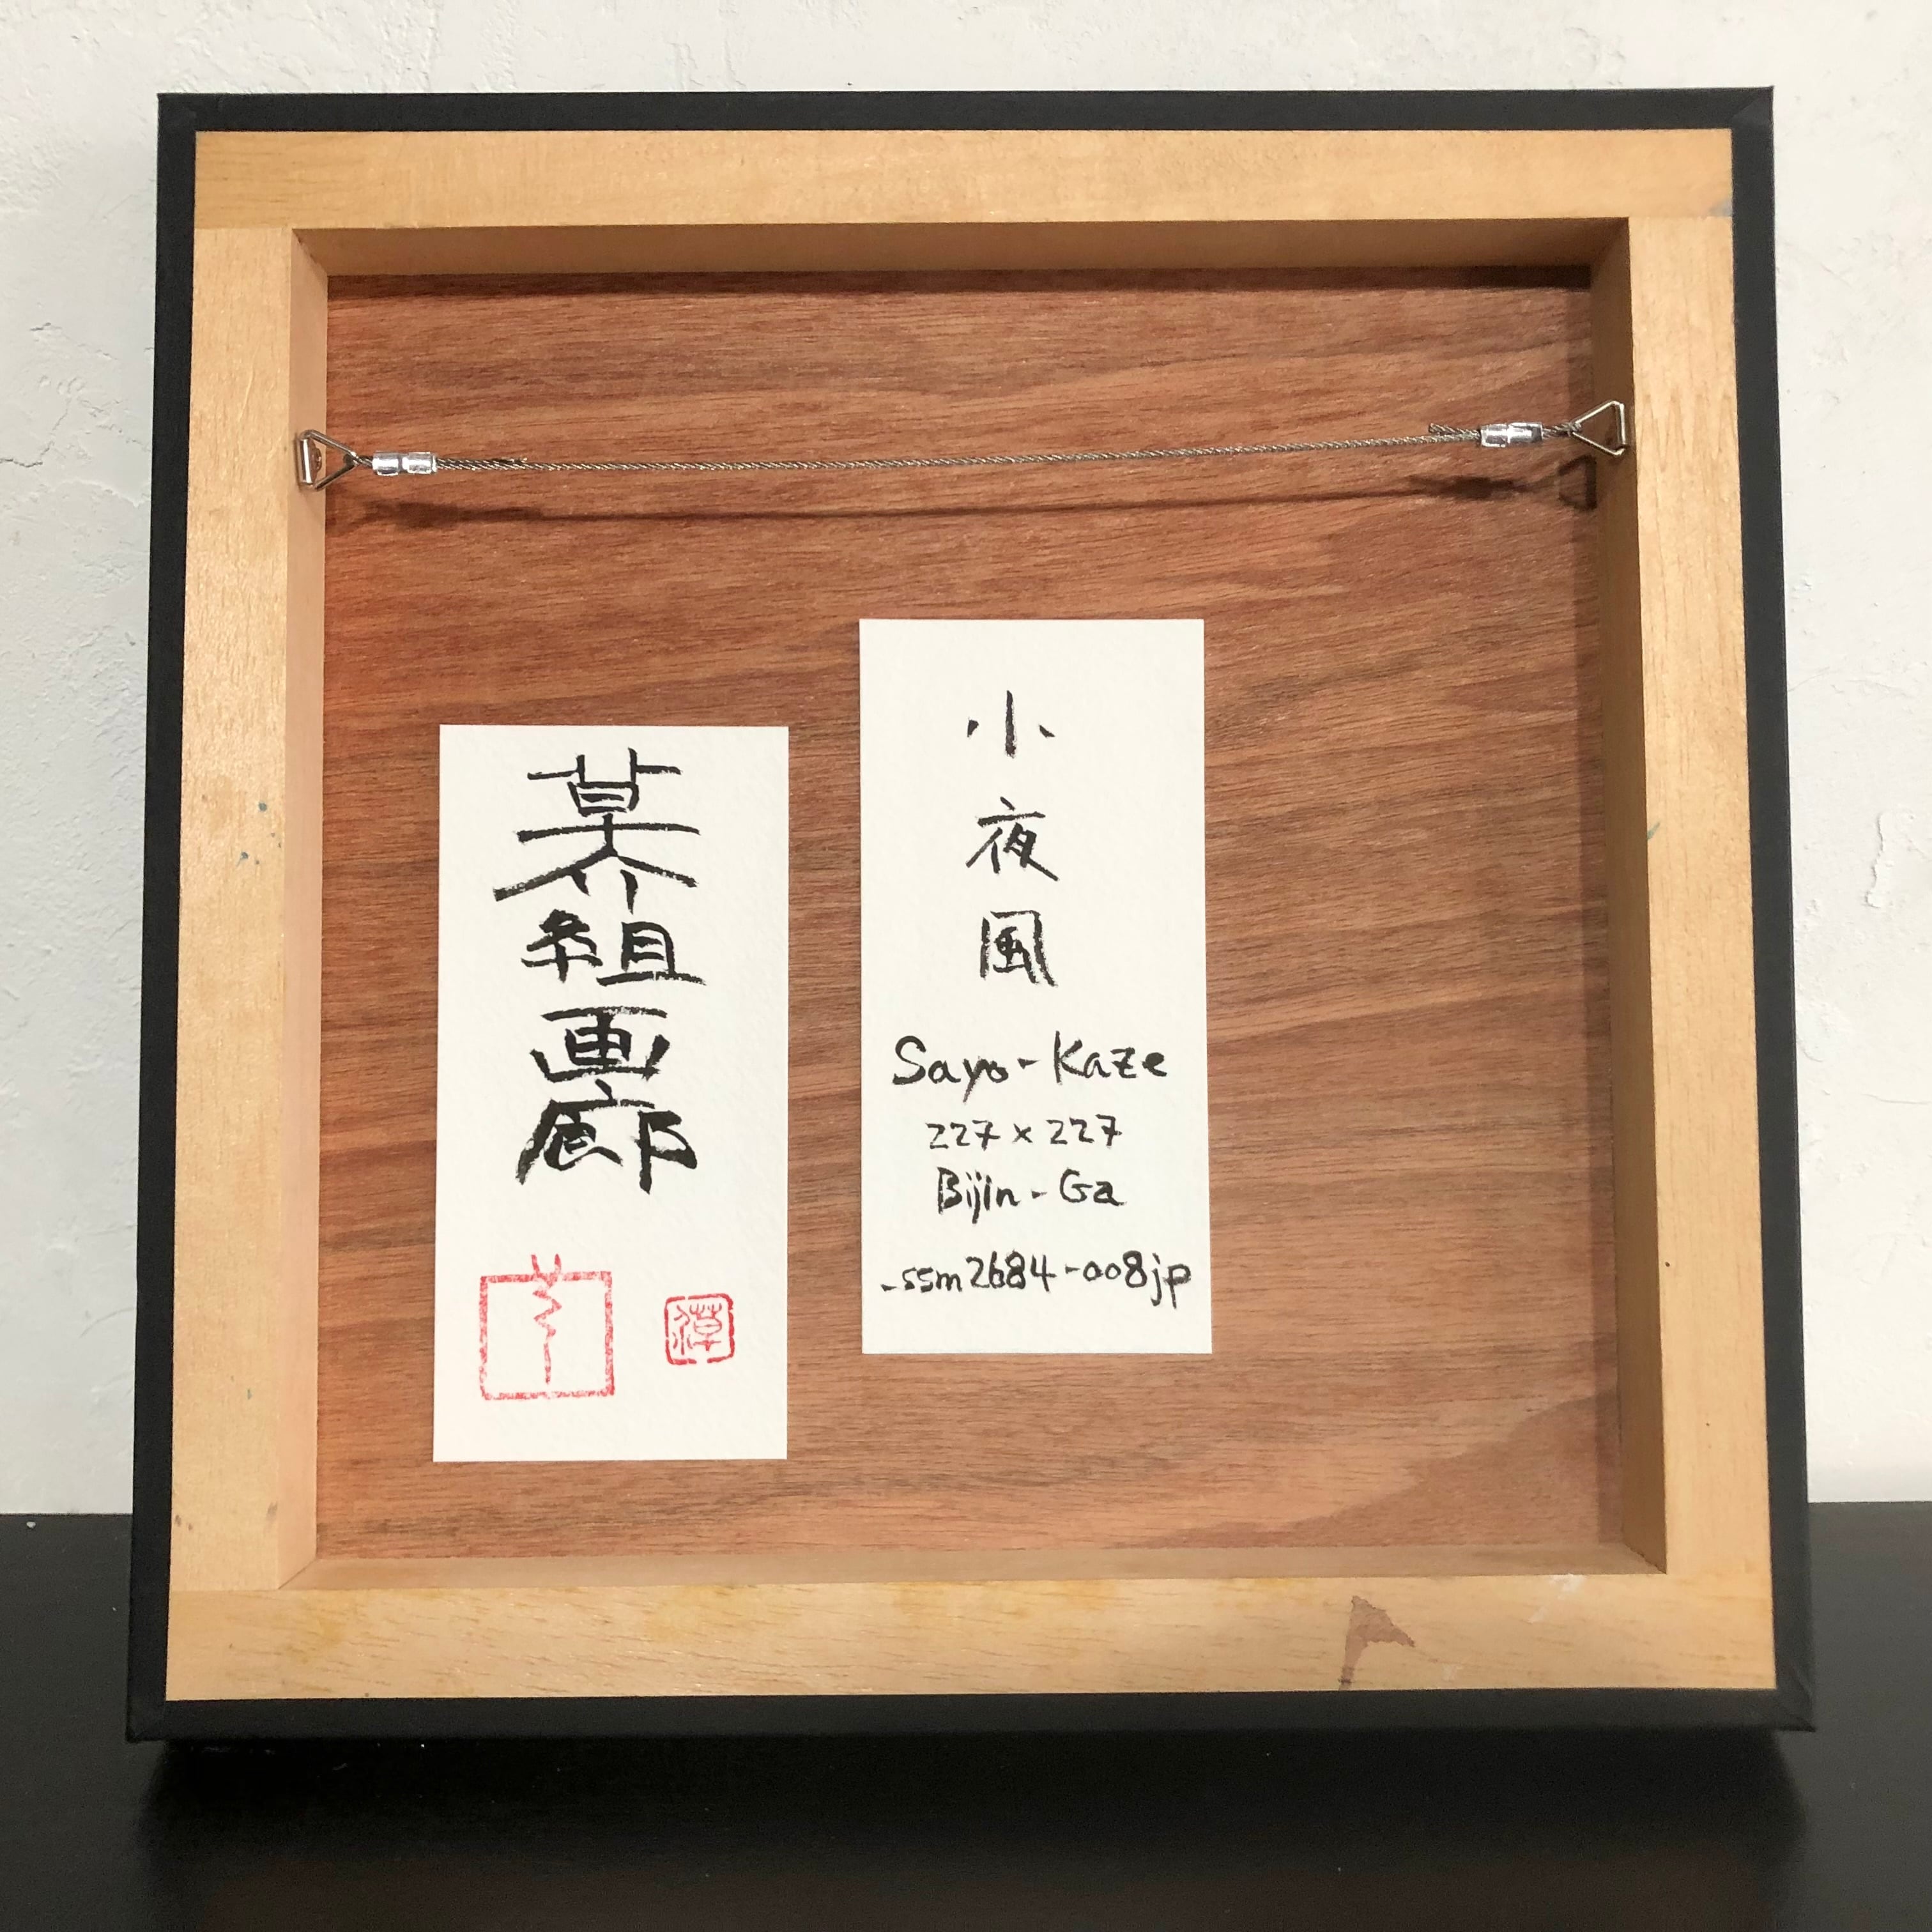 草介組画廊
小夜風
Sayo-Kaze
227×227
Bijin-Ga
-ssm2684-008jp